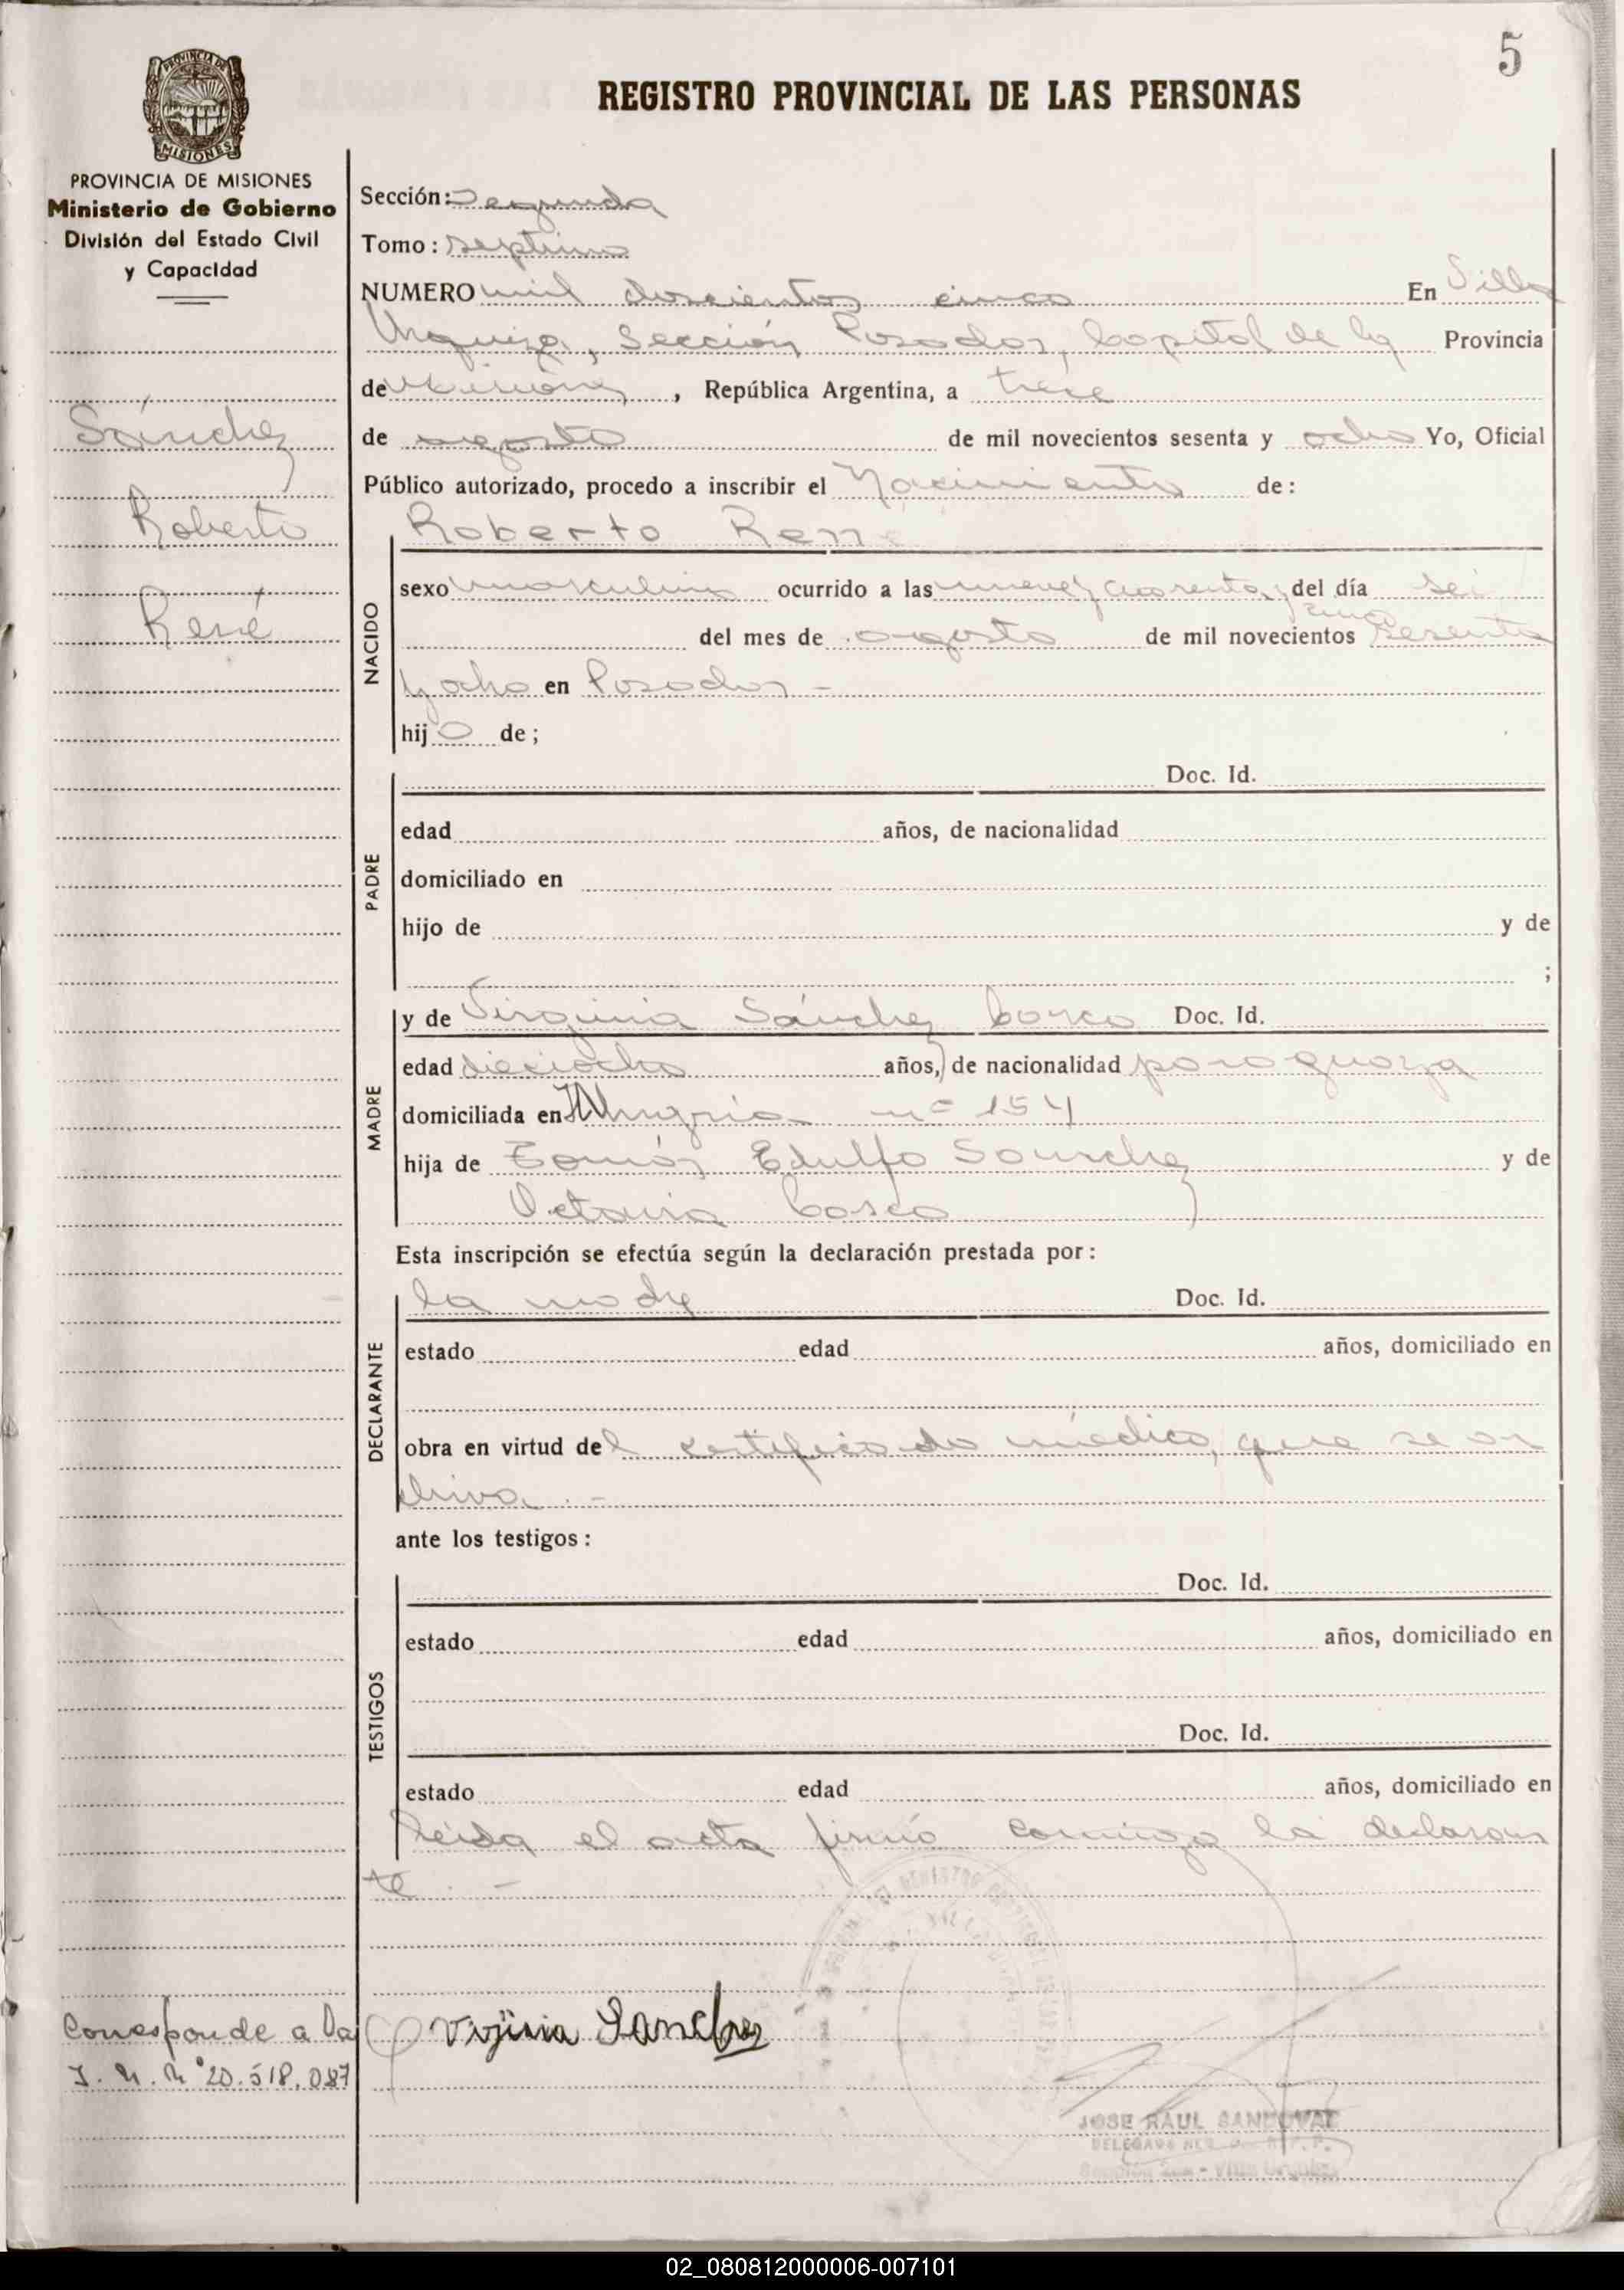 5
REGISTRO PROVINCIAL DE LAS PERSONAS
PROVINCIA DE MISIONES
PROVINCIA DE MISIONES
Ministerio de Gobierno
División del Estado Civil
y Capacidad
Sánchez
Roberto
René
Sección: Segunda
Tomo: septimo
NUMERO mil doscientos cinco En Villa
Urquiza, Sección Posadas, Capital de la Provincia
de Misiones, República Argentina, a trece
de agosto de mil novecientos sesenta y ocho Yo, Oficial
Público autorizado, procedo a inscribir el Nacimiento de:
NACIDO
Roberto René
sexo masculino ocurrido a las nueve y cuarenta y cinco del día seis
del mes de agosto de mil novecientos sesenta
y ocho en Posadas -
hijo de;
PADRE
Doc. Id.
edad años, de nacionalidad
domiciliado en
hijo de y de
;
MADRE
y de Virginia Sánchez Doc. Id.
edad dieciocho años, de nacionalidad paraguaya
domiciliada en Hungría nº 154
hija de Tomás Edulfo Sanchez y de
Octavia
Esta inscripción se efectúa según la declaración prestada por:
DECLARANTE
la madre Doc. Id.
estado edad años, domiciliado en
obra en virtud del certificado médico, que se ar
chiva. -
ante los testigos:
TESTIGOS
Doc. Id.
estado edad años, domiciliado en
Doc. Id.
estado edad años, domiciliado en
leida el acta firmó conmigo la declaran
te. -
Corresponde a la
I. M. Nº 20.518.087
Virjinia Sanchez
JOSE RAUL SANDOVAL
02_080812000006-007101